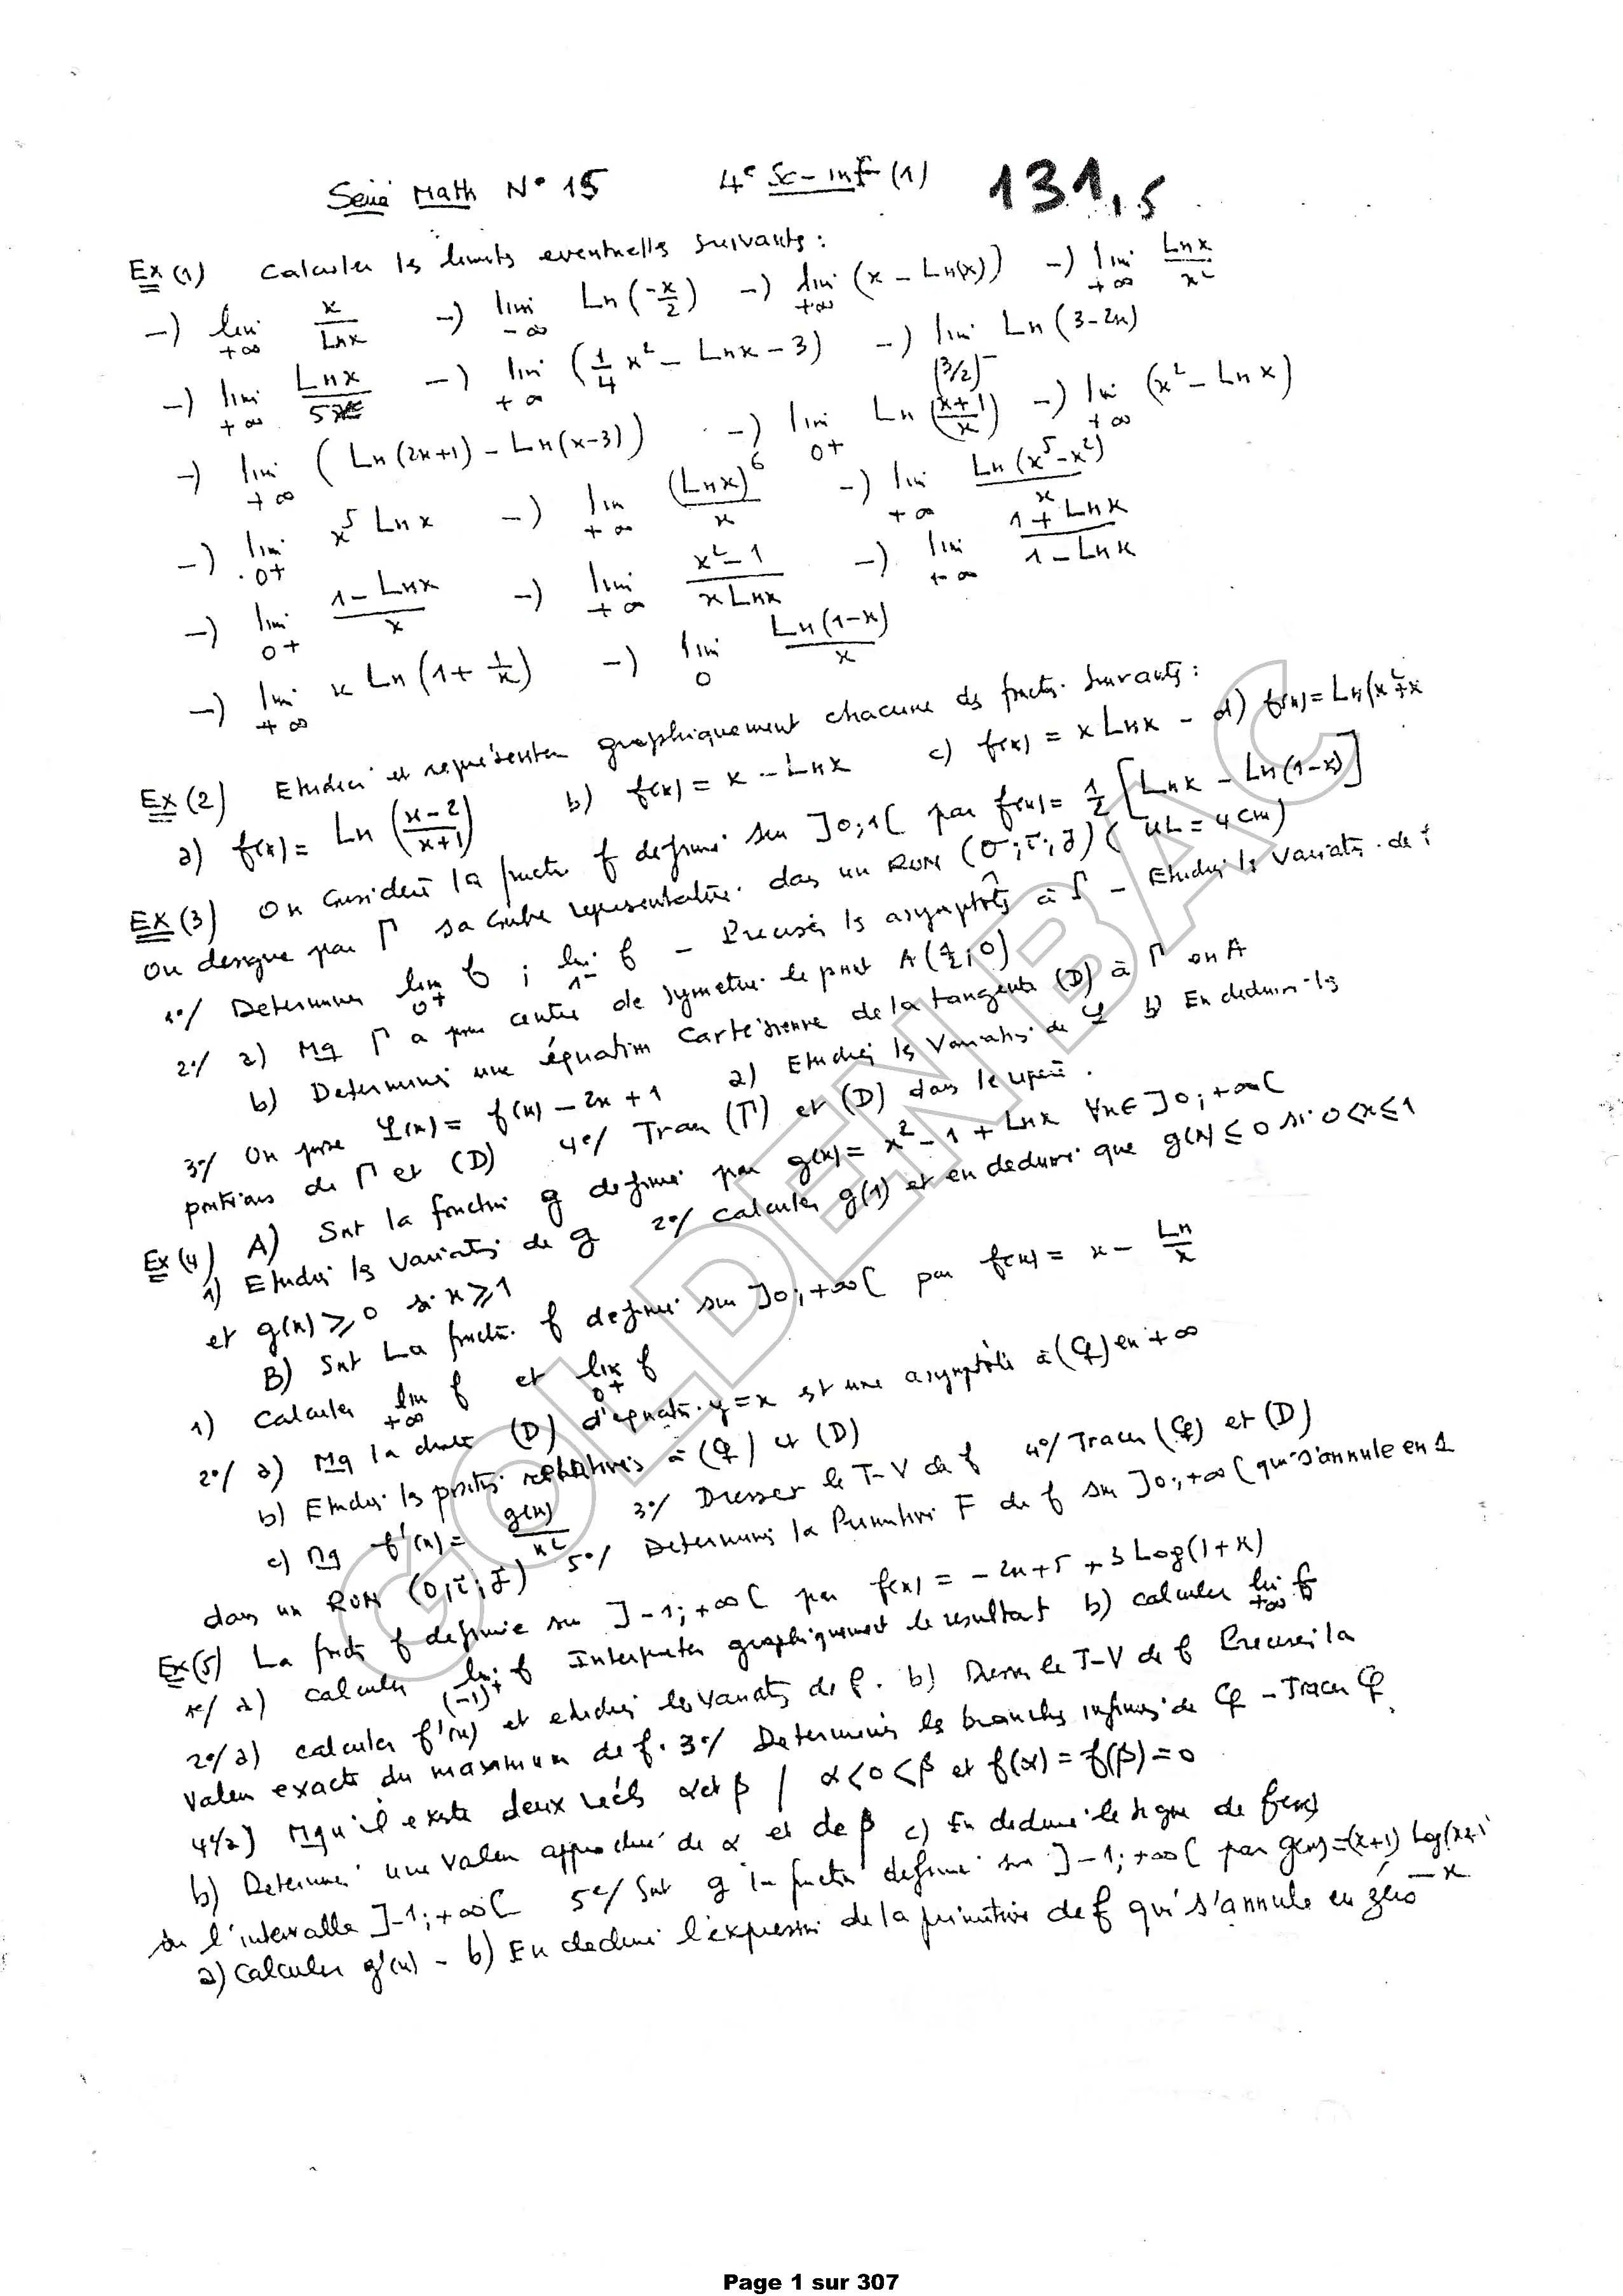 Serie Math N° 15 4e Sc-inf (1) 131,5
Ex(1) Calculer les limits eventuelles suivants :
-) lim +∞ x/Lnx -) lim -∞ Ln(-x/2) -) lim +∞ (x - Ln(x)) -) lim +∞ Lnx/x²
-) lim +∞ Lnx/5x -) lim +∞ (1/4 x² - Lnx - 3) -) lim (3/2)⁻ Ln(3-2x)
-) lim +∞ (Ln(2x+1) - Ln(x-3)) -) lim 0+ Ln(x+1/x) -) lim +∞ (x² - Lnx)
-) lim 0+ x⁵ Lnx -) lim +∞ (Lnx)⁶/x -) lim +∞ Ln(x⁵-x²)/x
-) lim 0+ 1-Lnx/x -) lim +∞ x²-1/xLnx -) lim +∞ 1+Lnx/1-Lnx
-) lim +∞ x Ln(1+1/x) -) lim 0 Ln(1-x)/x
Ex(2) Etudier et représenter graphiquement chacune des fonctº suivants :
a) f(x) = Ln(x-2/x+1) b) f(x) = x - Lnx c) f(x) = x Lnx - d) f(x) = Ln(x²+x
Ex(3) On considere la fonctº f definie sur ]0;1[ par f(x) = 1/2 [Lnx - Ln(1-x)]
On designe par Γ sa courbe representative dans un RON (O;i;j) (UL = 4cm)
1°/ Determiner lim 0+ f ; lim 1⁻ f - Preciser les asymptôts à Γ - Etudier les variatº de f
2°/ a) Mq Γ a pour centre de symetrie le point A(1/2;0)
b) Determiner une équation cartésienne de la tangente (D) à Γ en A
3°/ On pose φ(x) = f(x) - 2x + 1 a) Etudier les variatº de φ b) En deduire les
positions de Γ et (D) 4°/ Tracer (Γ) et (D) dans le repère.
Ex(4) A) Soit la fonction g definie par g(x) = x² - 1 + Lnx ∀x∈]0;+∞[
1) Etudier les variatº de g 2°/ calculer g(1) et en deduire que g(x) ≤ 0 si 0<x≤1
et g(x) ≥ 0 si x ≥ 1
B) Soit La fonctº f definie sur ]0;+∞[ par f(x) = x - Ln/x
1) Calculer lim +∞ f et lim 0+ f
2°/ a) Mq la droite (D) d'équatº y=x est une asymptôte à (Cf) en +∞
b) Etudier les positº relatives à (Cf) et (D)
c) Mq f'(x) = g(x)/x² 3°/ Dresser le T-V de f 4°/ Tracer (Cf) et (D)
dans un RON (O;i;j) 5°/ Determiner la Primitive F de f sur ]0;+∞[ qui s'annule en 1
Ex(5) La fonctº f definie sur ]-1;+∞[ par f(x) = -2x+5+3Log(1+x)
1°/ a) calculer lim (-1)⁺ f Interpreter graphiquement le resultat b) calculer lim +∞ f
2°/ a) calculer f'(x) et etudier les variatº de f. b) Dresser le T-V de f Preciser la
valeur exacte du maximum de f. 3°/ Determiner les branches infinies de Cf - Tracer Cf.
4°/ a) Mq u'il existe deux réels α et β / α<0<β et f(α) = f(β) = 0
b) Determiner une valeur approchée de α et de β c) En deduire le signe de f(x)
sur l'intervalle ]-1;+∞[ 5°/ Soit g la fonctº definie sur ]-1;+∞[ par g(x)=(x+1) Log(x+1) - x
a) calculer g'(x) - b) En deduire l'expression de la primitive de f qui s'annule en zéro
GOLDEN BAC
Page 1 sur 307